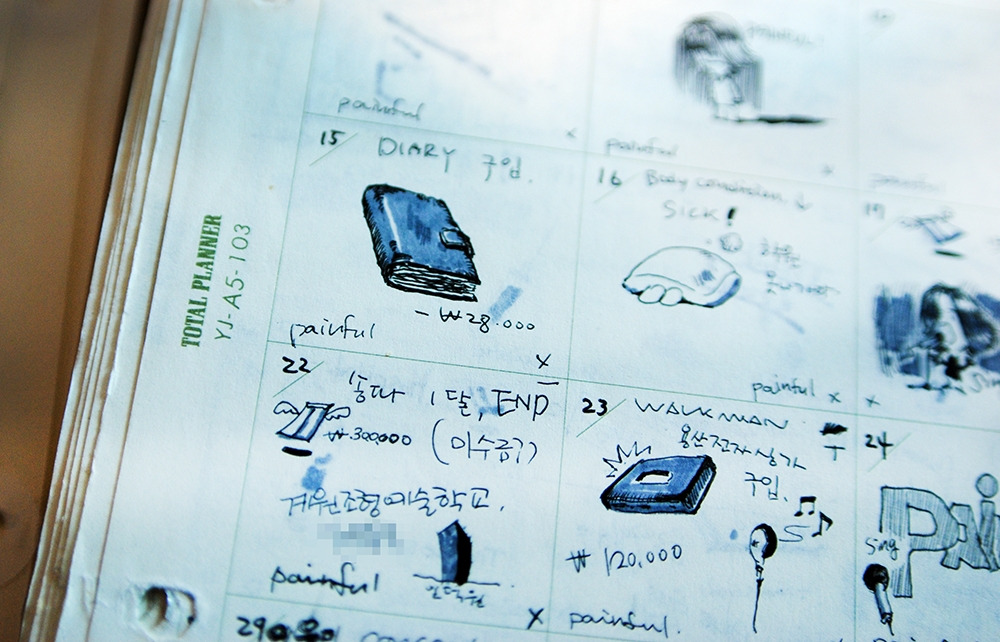 painful
painful
15
DIARY 구입.
-₩28.000
painful
x
16
Body condition ↓
SICK!
painful x
TOTAL PLANNER
YJ-A5-103
22
1달, END
₩300000
계원조형예술학교.
painful
x
23
WALKMAN
용산전자상가
구입.
₩120,000
painful.
24
Pai
Sing
29